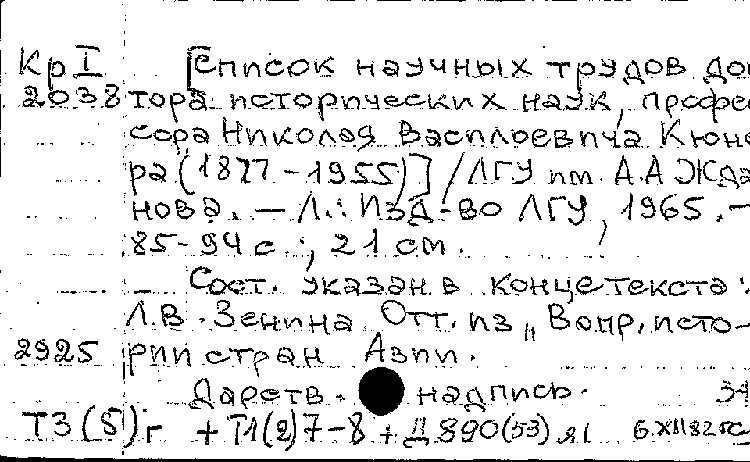 Кр I [Список научных трудов док
2038 тора исторических наук, профес
сора Николая Васильевича Кюне
ра (1877-1955)] / ЛГУ им. А.А Жда
нова. — Л.: Изд-во ЛГУ, 1965. —
85-94 с.; 21 см.
— Сост. указан в конце текста:
Л.В. Зенина Отт. из „Вопр. исто-
2925 рии стран Азии.
Дарств. надпись.
Т3(5)г + Т1(2)7-8 + Д 890(53) я1 6.XII82